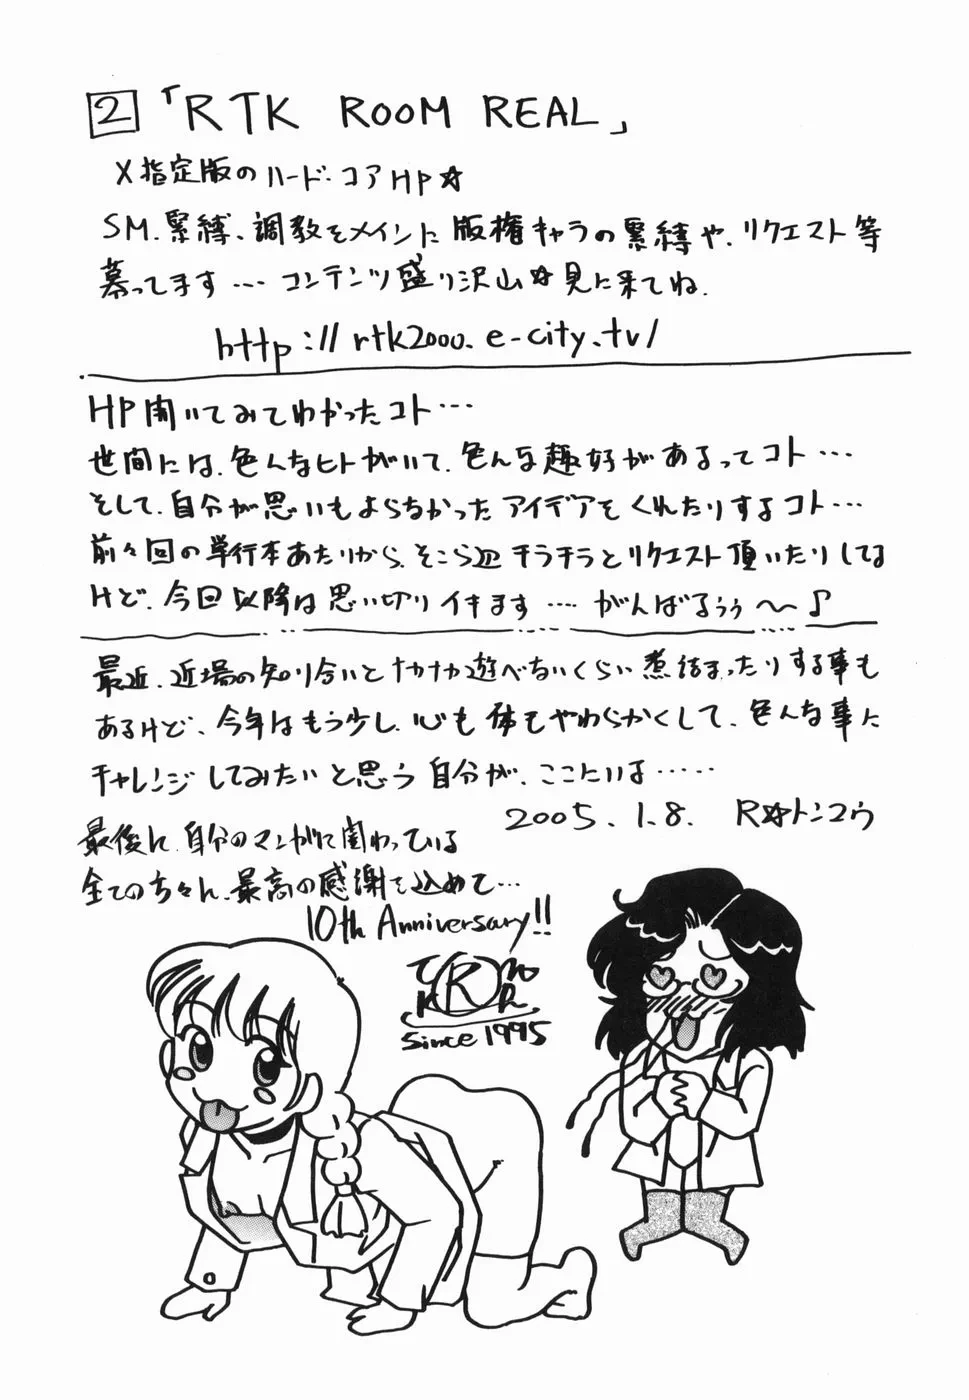 2 「RTK ROOM REAL」
X指定版のハード・コアHP☆
SM、緊縛、調教をメインに版権キャラの緊縛や、リクエスト等
募ってます… コンテンツ盛り沢山☆見に来てね.
http://rtk2000.e-city.tv/
HP開いてみてわかったコト…
世間には、色んなヒトがいて、色んな趣好があるってコト…
そして、自分が思いもよらなかったアイデアをくれたりするコト…
前々回の単行本あたりから、そこら辺チラチラとリクエスト頂いたりしてる
けど、今回以降は思い切りイキます… がんばるぅぅ〜♪
最近、近場の知り合いとナカナカ遊べないくらい煮詰まったりする事も
あるけど、今年はもう少し、心も体もやわらかくして、色んな事に
チャレンジしてみたいと思う自分が、ここにいる……
2005.1.8. R☆トンコウ
最後に、自分のマンガに関わっている
全ての方々へ、最高の感謝を込めて…
10th Anniversary!!
since 1995